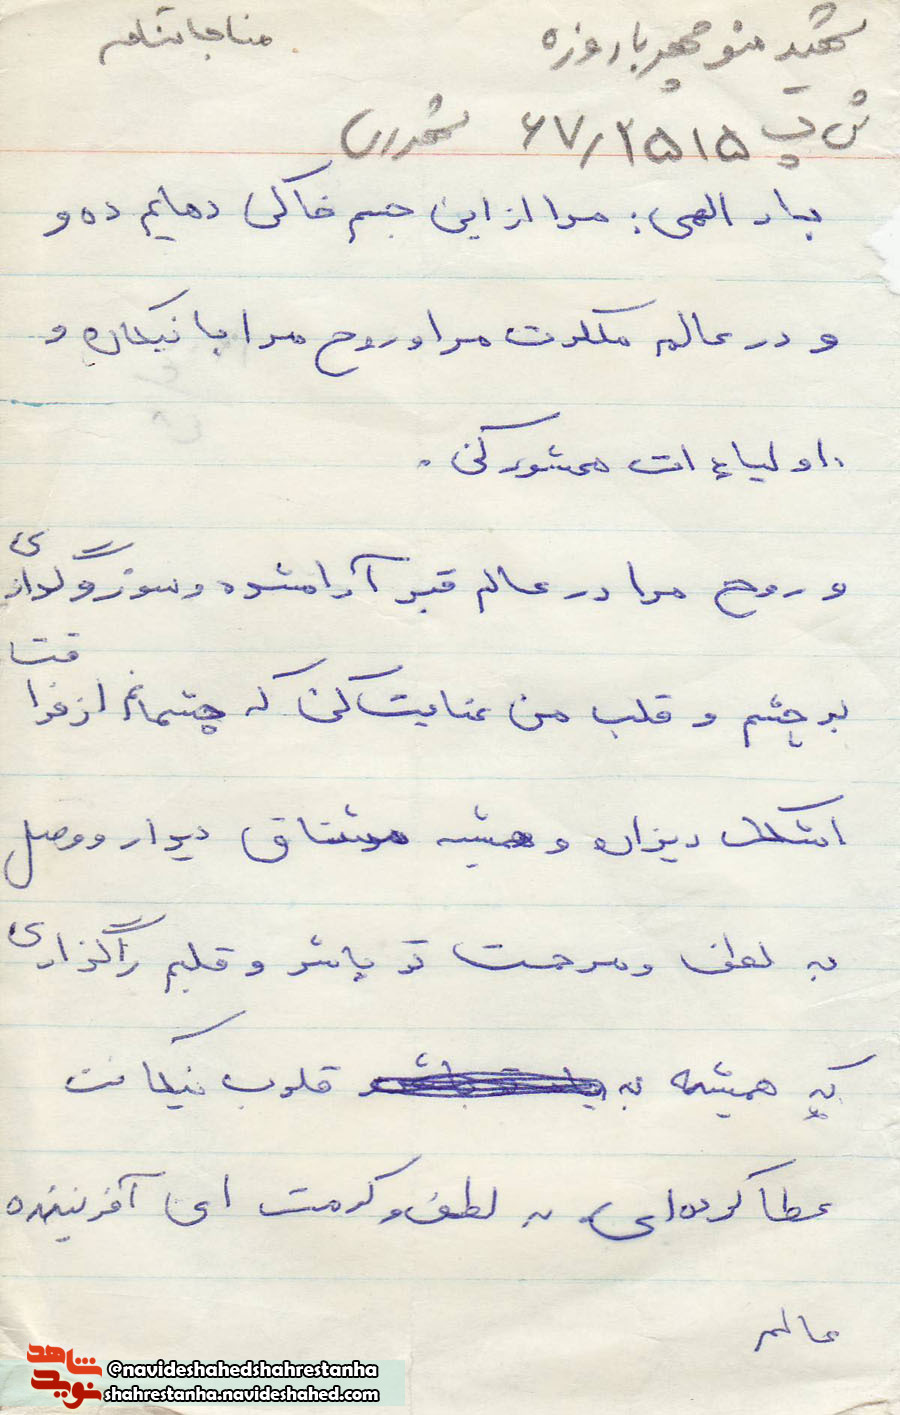 شهید منوچهر باروزه مناجاتنامه
ش پ ۶۷/۲۵۱۵ شهرری
بار الهی: مرا از این جسم خاکی رهایم ده و
و در عالم ملکوت مرا و روح مرا با نیکان و
اولیاء ات محشور کن.
و روح مرا در عالم قبر آرامشده و سوز و گدازی
بر چشم و قلب من عنایت کن که چشمانم از فراقت
اشک ریزان و همیشه مشتاق دیدار و وصل
به لطف و مرحمت تو باشد و قلبم را گذاری
که همیشه به قلوب نیکانت
عطا کرده‌ای به لطف و کرمت ای آفریننده
عالم
شاهد
نوید
@navideshahedshahrestanha
shahrestanha.navideshahed.com